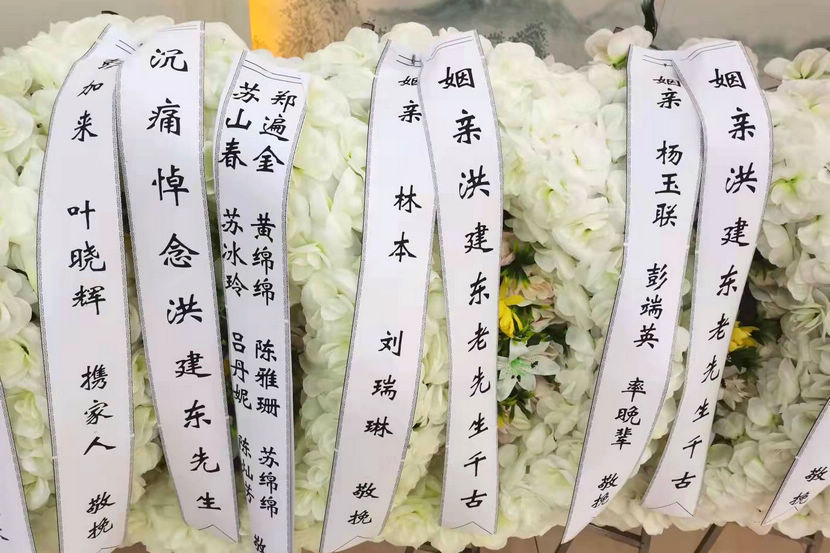 姻亲洪建东老先生千古
姻亲 杨玉联 彭端英 率晚辈 敬挽
姻亲洪建东老先生千古
姻亲 林本 刘瑞琳 敬挽
郑遍金 黄绵绵 陈雅珊 苏绵绵
苏山春 苏冰玲 吕丹妮 陈灿芳 敬
沉痛悼念洪建东先生
加来 叶晓辉 携家人 敬挽
敬挽